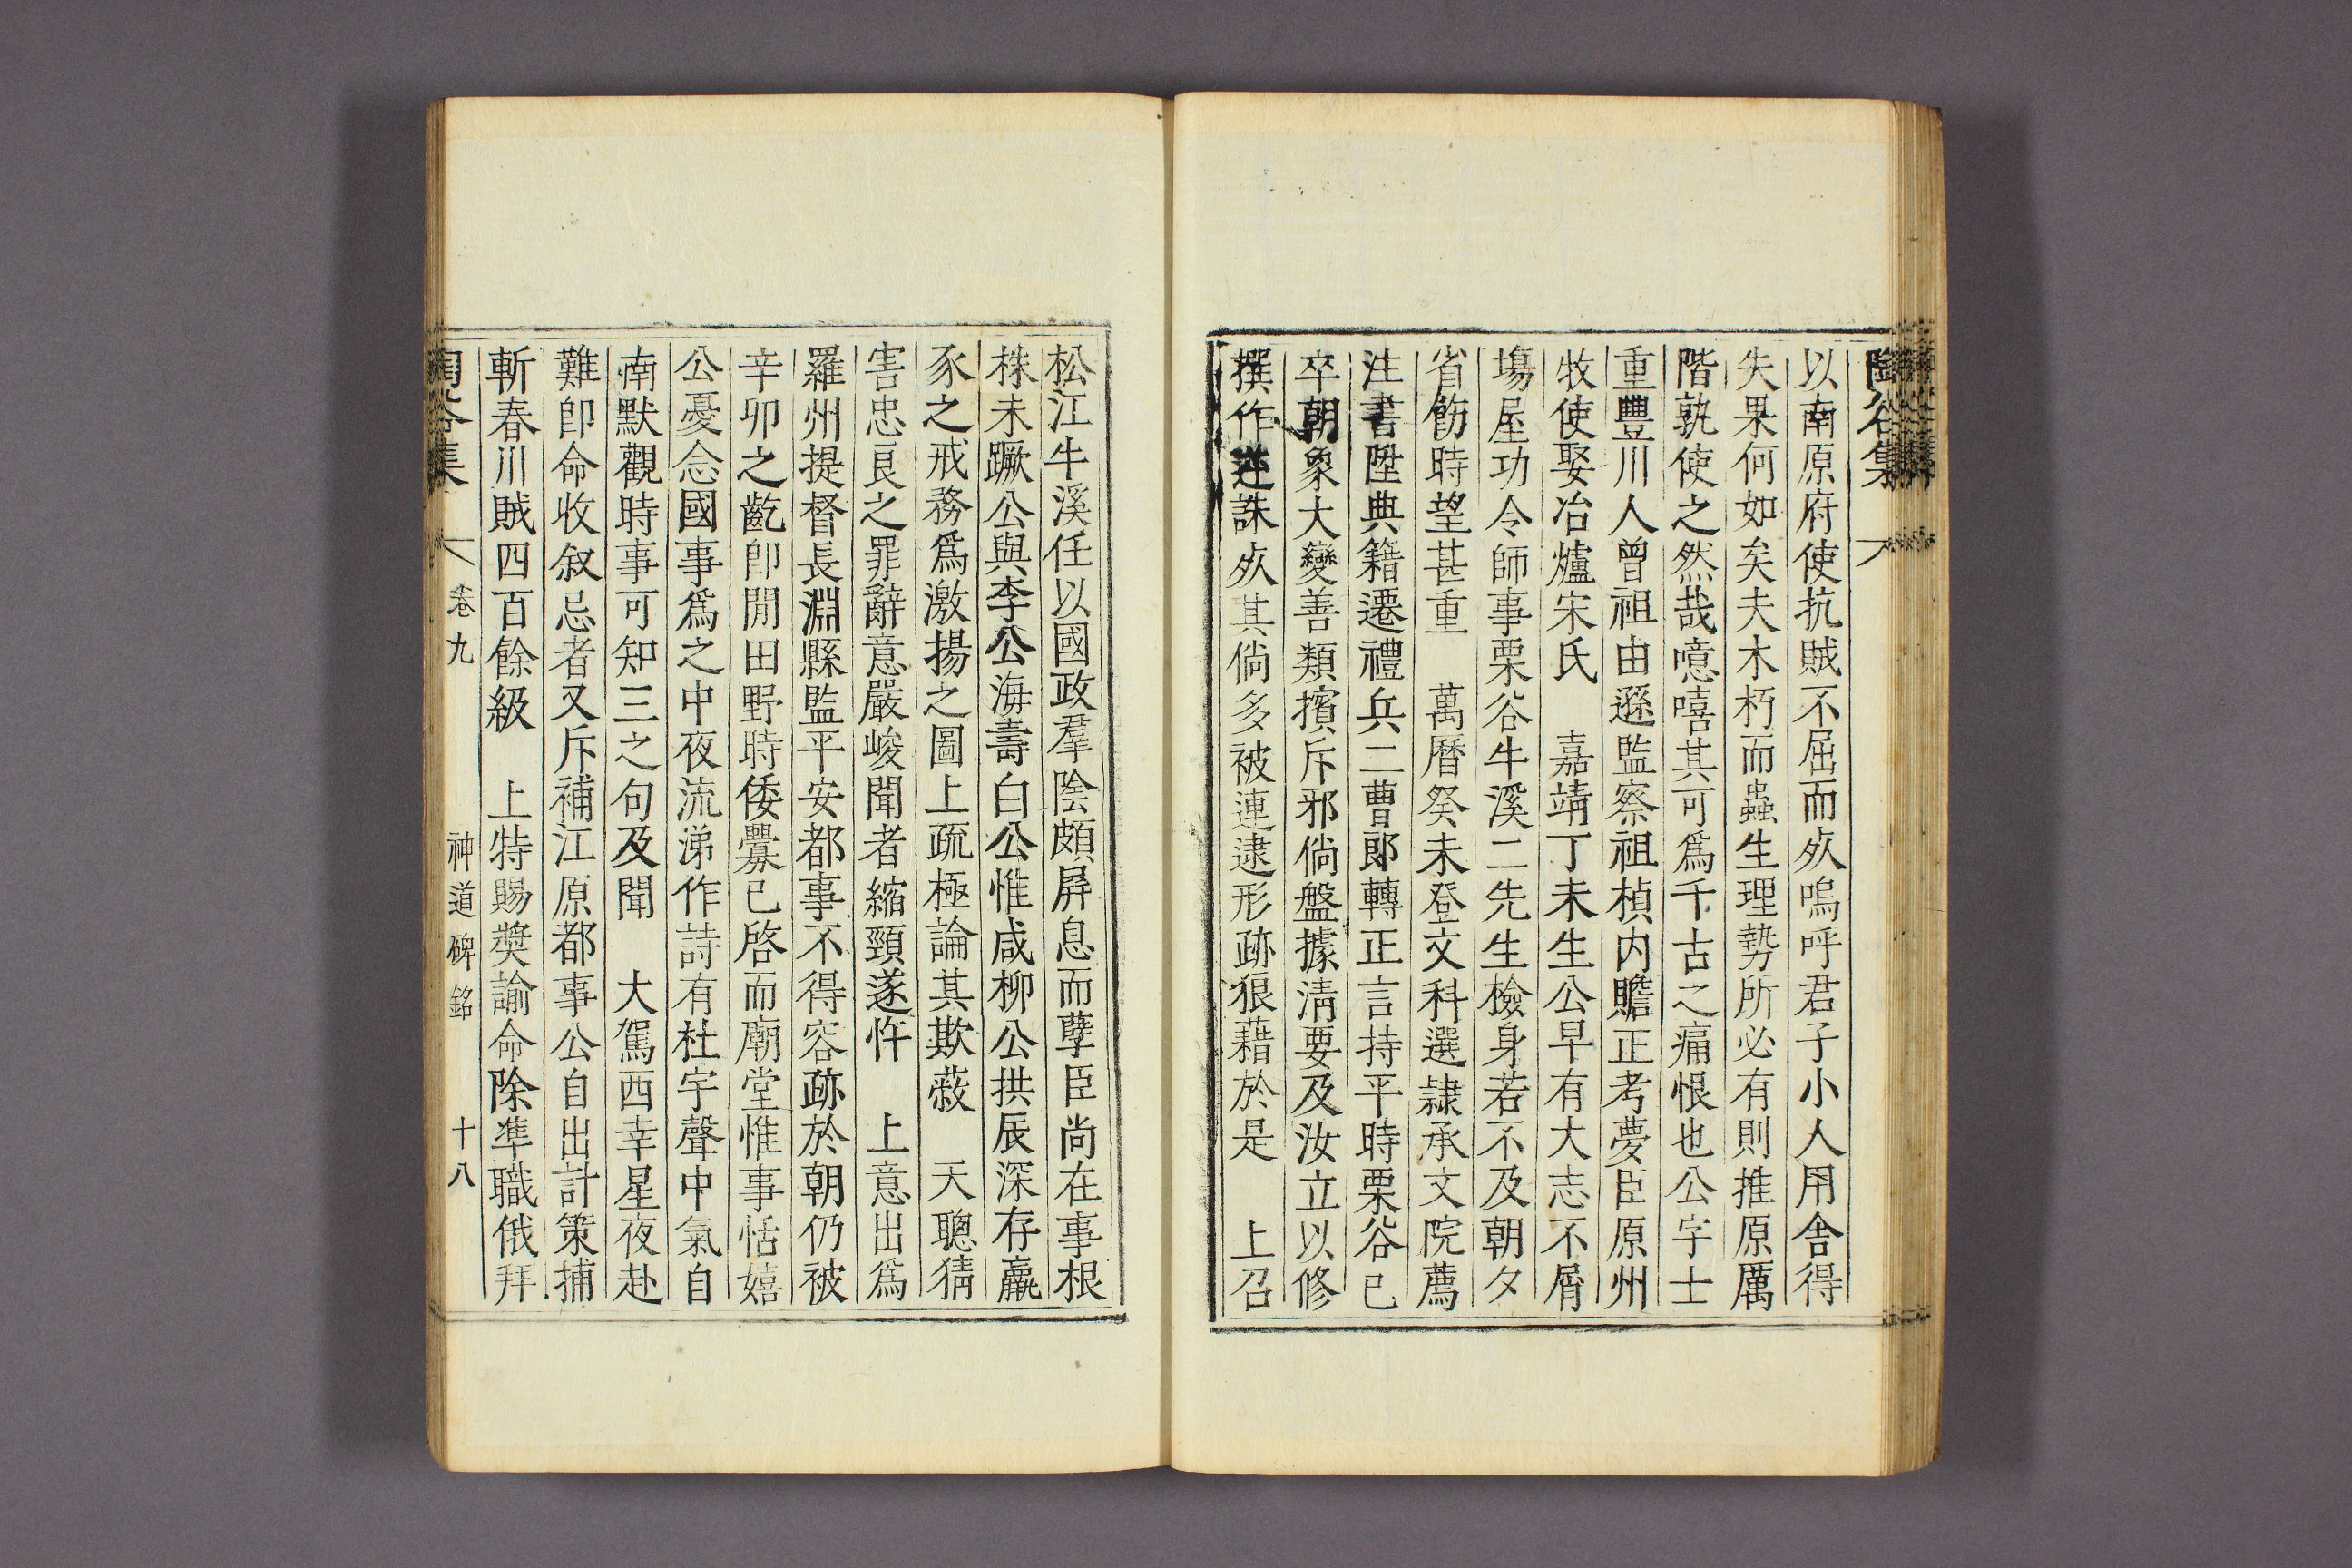 陶谷集
以南原府使抗賊不屈而死嗚呼君子小人用舍得
失果何如矣夫木朽而蟲生理勢所必有則推原厲
階孰使之然哉噫嘻其可爲千古之痛恨也公字士
重豐川人曾祖由遜監察祖楨内贍正考夢臣原州
牧使娶冶爐宋氏 嘉靖丁未生公早有大志不屑
塲屋功令師事栗谷牛溪二先生檢身若不及朝夕
省飭時望甚重 萬曆癸未登文科選隷承文院薦
注書陞典籍遷禮兵二曹郞轉正言持平時栗谷已
卒朝象大變善類擯斥邪倘盤據淸要及汝立以修
撰作逆誅死其倘多被連逮形跡狼藉於是 上召
松江牛溪任以國政羣陰頗屛息而孽臣尚在事根
株未蹶公與李公海壽白公惟咸柳公拱辰深存羸
豕之戒務爲激揚之圖上疏極論其欺蔽 天聰猜
害忠良之罪辭意嚴峻聞者縮頸遂忤 上意出爲
羅州提督長淵縣監平安都事不得容跡於朝仍被
辛卯之齕卽閒田野時倭釁已啓而廟堂惟事恬嬉
公憂念國事爲之中夜流涕作詩有杜宇聲中氣自
南默觀時事可知三之句及聞 大駕西幸星夜赴
難卽命收叙忌者又斥補江原都事公自出計策捕
斬春川賊四百餘級 上特賜奬諭命除準職俄拜
陶谷集 卷九 神道碑銘 十八